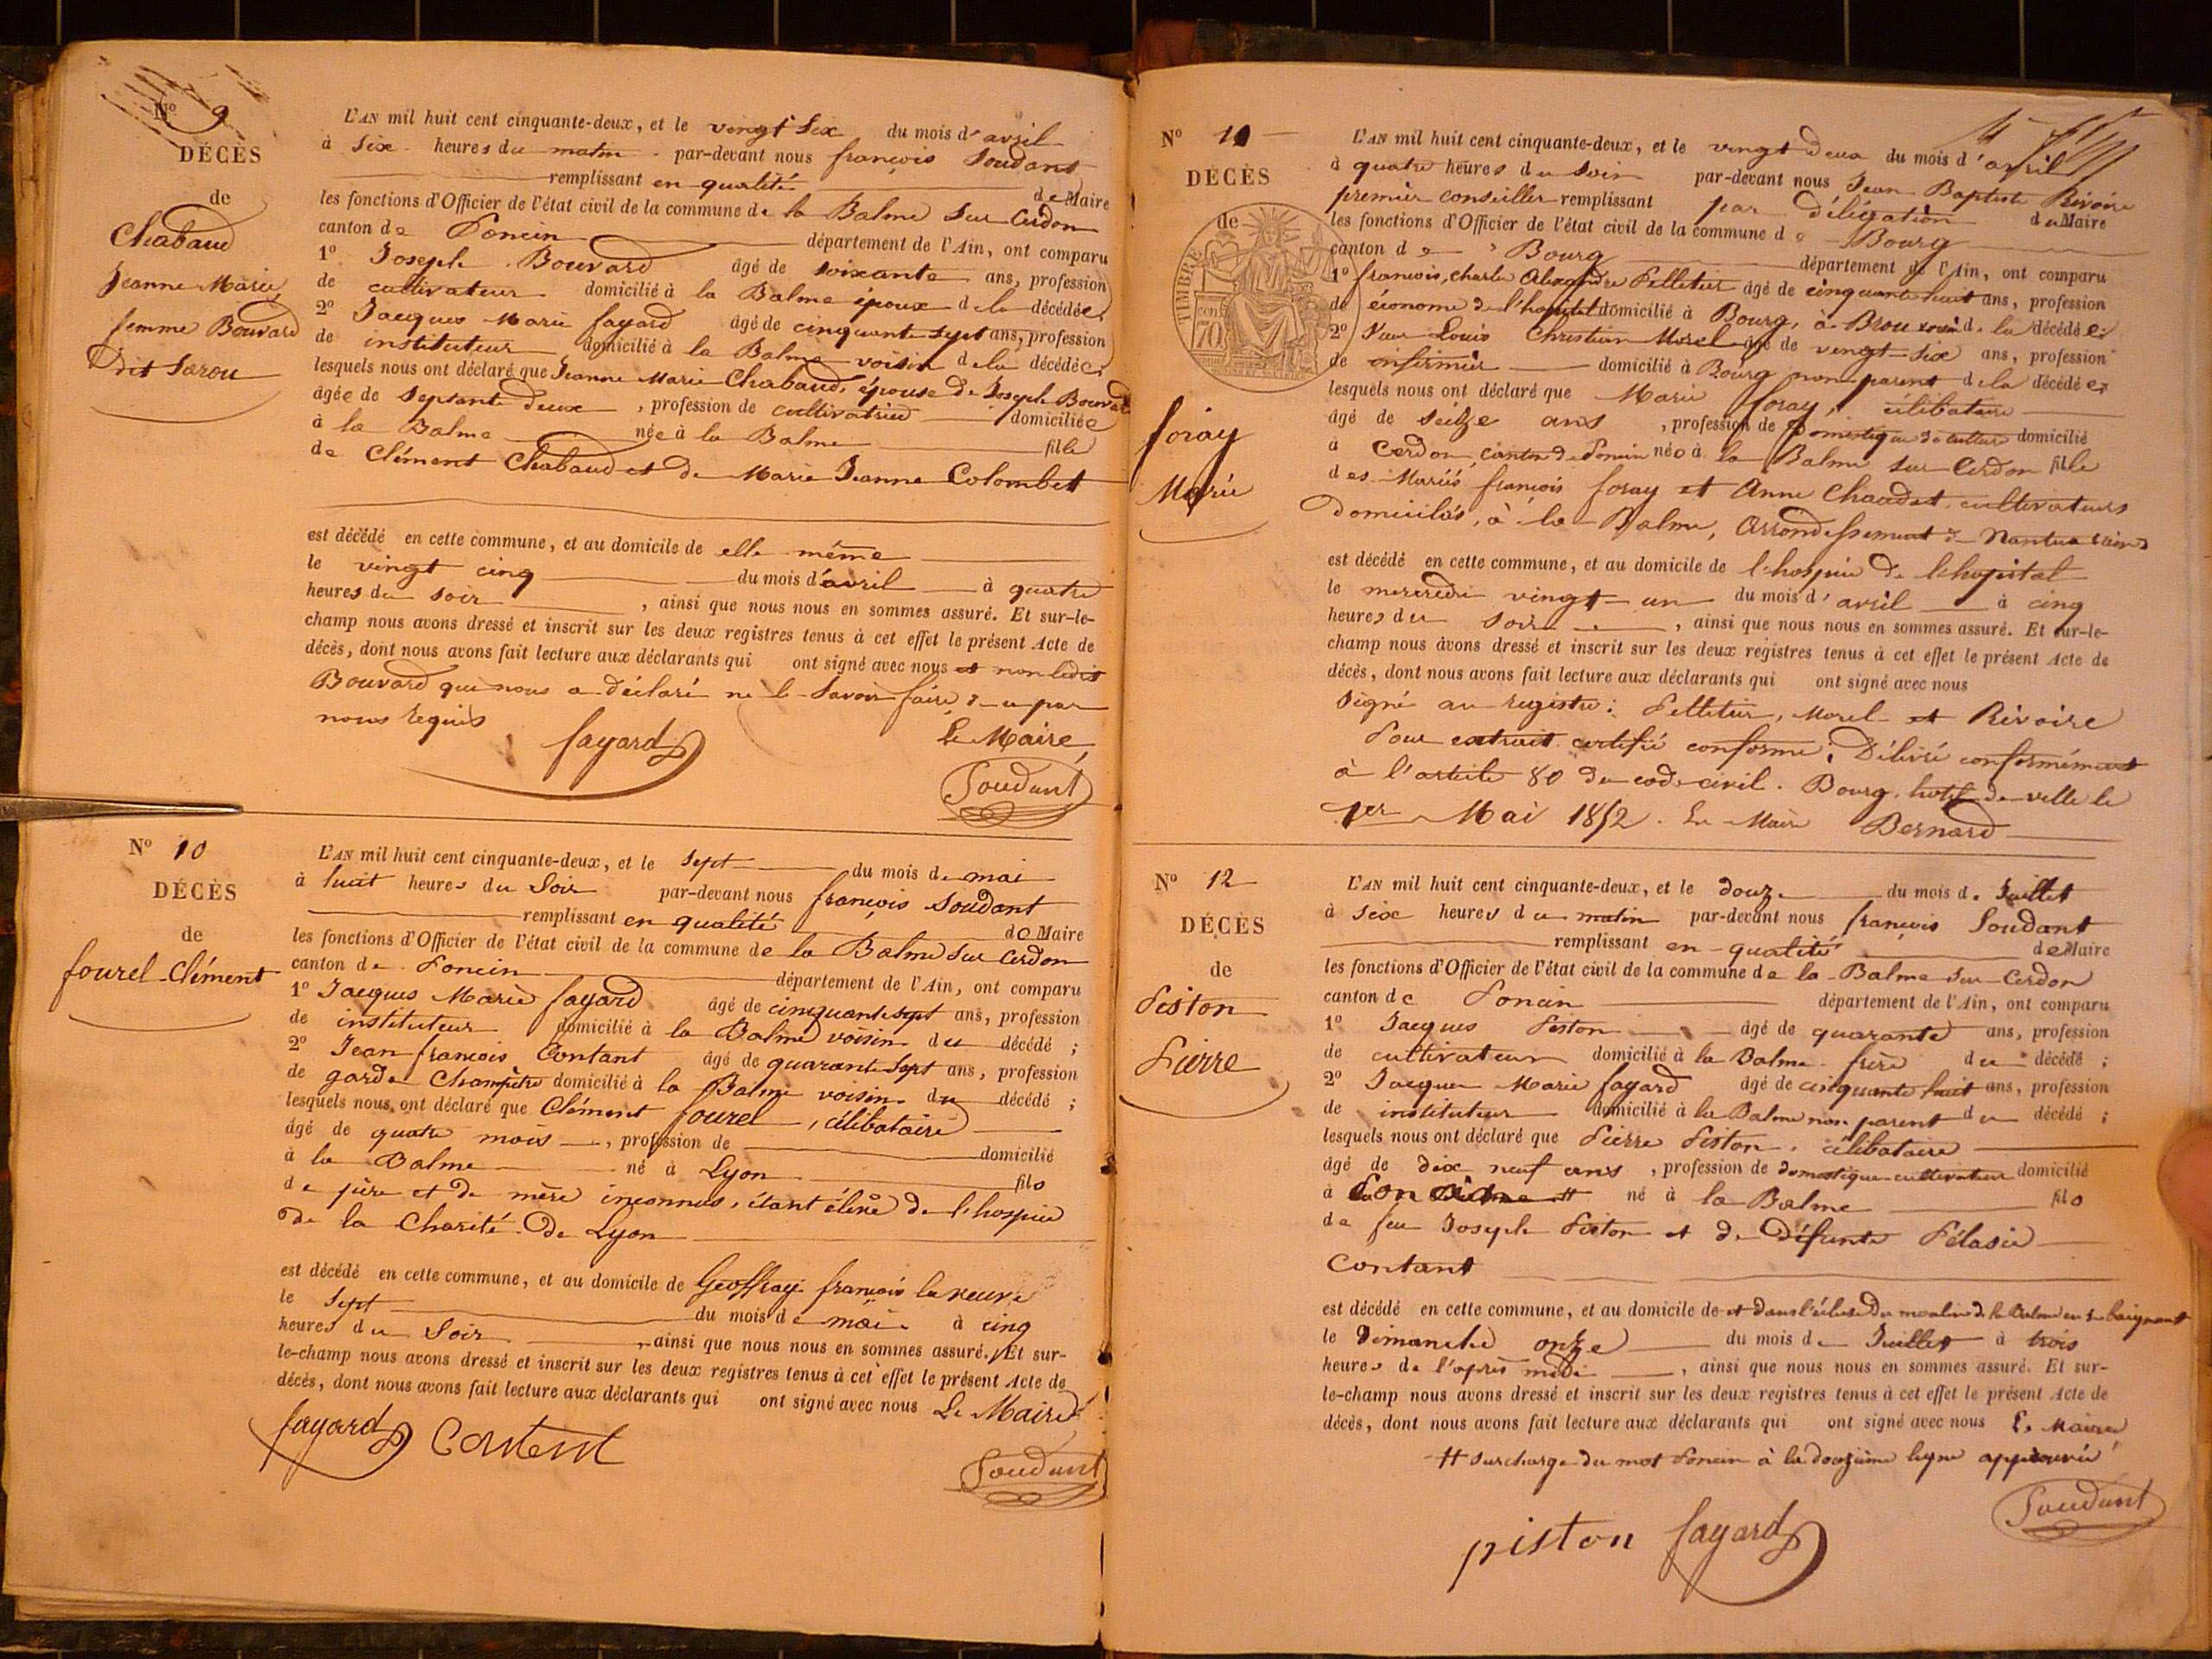 N° 9
DÉCÈS
de
Chabaud
Jeanne Marie
femme Bouvard
dit Sarou
L'AN mil huit cent cinquante-deux, et le vingt six du mois d'avril
à six heures du matin par-devant nous françois Soudant
remplissant en qualité de Maire
les fonctions d'Officier de l'état civil de la commune de la Balme sur Cerdon
canton de Poncin département de l'Ain, ont comparu
1° Joseph Bouvard âgé de soixante ans, profession
de cultivateur domicilié à la Balme époux de la décédée
2° Jacques Marie fayard âgé de cinquante sept ans, profession
de instituteur domicilié à la Balme voisin de la décédée
lesquels nous ont déclaré que Jeanne Marie Chabaud, épouse de Joseph Bouvard
âgée de septante deux, profession de cultivatrice domiciliée
à la Balme née à la Balme fille
de Clément Chabaud et de Marie Jeanne Colombet
est décédé en cette commune, et au domicile de elle même
le vingt cinq du mois d'avril à quatre
heures du soir, ainsi que nous nous en sommes assuré. Et sur-le-
champ nous avons dressé et inscrit sur les deux registres tenus à cet effet le présent Acte de
décès, dont nous avons fait lecture aux déclarants qui ont signé avec nous et non ledit
Bouvard qui nous a déclaré ne le savoir faire, de ce par
nous requis
fayard
Le Maire,
Soudant
N° 10
DÉCÈS
de
fourel Clément
L'AN mil huit cent cinquante-deux, et le sept du mois de mai
à huit heures du soir par-devant nous françois Soudant
remplissant en qualité de Maire
les fonctions d'Officier de l'état civil de la commune de la Balme sur Cerdon
canton de Poncin département de l'Ain, ont comparu
1° Jacques Marie fayard âgé de cinquante sept ans, profession
de instituteur domicilié à la Balme voisin du décédé ;
2° Jean françois Contant âgé de quarante sept ans, profession
de garde Champêtre domicilié à la Balme voisin du décédé ;
lesquels nous ont déclaré que Clément fourel, célibataire
âgé de quatre mois, profession de domicilié
à la Balme né à Lyon fils
de père et de mère inconnus, étant élève de l'hospice
de la Charité de Lyon
est décédé en cette commune, et au domicile de Geoffray françois la veuve
le sept du mois de mai à cinq
heures du soir, ainsi que nous nous en sommes assuré. Et sur-
le-champ nous avons dressé et inscrit sur les deux registres tenus à cet effet le présent Acte de
décès, dont nous avons fait lecture aux déclarants qui ont signé avec nous Le Maire
fayard Contant
Soudant
N° 11
DÉCÈS
de
TIMBRE
70
foray
Marie
L'AN mil huit cent cinquante-deux, et le vingt deux du mois d'avril
à quatre heures du soir par-devant nous Jean Baptiste Rivoire
premier conseiller remplissant par délégation du Maire
les fonctions d'Officier de l'état civil de la commune de Bourg
canton de Bourg département de l'Ain, ont comparu
1° francois, charle Alexandre Pelletier âgé de cinquante huit ans, profession
de économe de l'hopital domicilié à Bourg, à Brou voisin de la décédée
2° Louis Christian Morel âgé de vingt-six ans, profession
de infirmier domicilié à Bourg non parent de la décédée
lesquels nous ont déclaré que Marie foray, célibataire
âgé de seitze ans, profession de domestique de culture domicilié
à Cerdon, canton de Poncin née à la Balme sur Cerdon fille
des Mariés françois foray et Anne Chaudet cultivateurs
domiciliés, à la Balme, Arrondissement de Nantua (ain)
est décédé en cette commune, et au domicile de l'hospice de l'hopital
le mercredi vingt-un du mois d'avril à cinq
heures du soir, ainsi que nous nous en sommes assuré. Et sur-le-
champ nous avons dressé et inscrit sur les deux registres tenus à cet effet le présent Acte de
décès, dont nous avons fait lecture aux déclarants qui ont signé avec nous
Signé au registre: Pelletier, Morel et Rivoire
Pour extrait certifié conforme; Délivré conformément
à l'article 80 du code civil. Bourg, hotel de ville le
1er Mai 1852. Le Maire Bernard
N° 12
DÉCÈS
de
Piston
Pierre
L'AN mil huit cent cinquante-deux, et le douze du mois de Juillet
à six heures du matin par-devant nous françois Soudant
remplissant en qualité de Maire
les fonctions d'Officier de l'état civil de la commune de la Balme sur Cerdon
canton de Poncin département de l'Ain, ont comparu
1° Jacques Piston âgé de quarante ans, profession
de cultivateur domicilié à la Balme frère du décédé ;
2° Jacques Marie fayard âgé de cinquante huit ans, profession
de instituteur domicilié à la Balme non parent du décédé ;
lesquels nous ont déclaré que Pierre Piston, célibataire
âgé de dix neuf ans, profession de domestique cultivateur domicilié
à né à la Balme fils
de feu Joseph Piston et de défunte Pélasie
Contant
est décédé en cette commune, et au domicile de et dans l'écluse du moulin de la Balme en se baignant
le dimanche onze du mois de Juillet à trois
heures de l'après midi, ainsi que nous nous en sommes assuré. Et sur-
le-champ nous avons dressé et inscrit sur les deux registres tenus à cet effet le présent Acte de
décès, dont nous avons fait lecture aux déclarants qui ont signé avec nous Le Maire
# surcharge du mot Poncin à la douzième ligne approuvée
Soudant
piston fayard